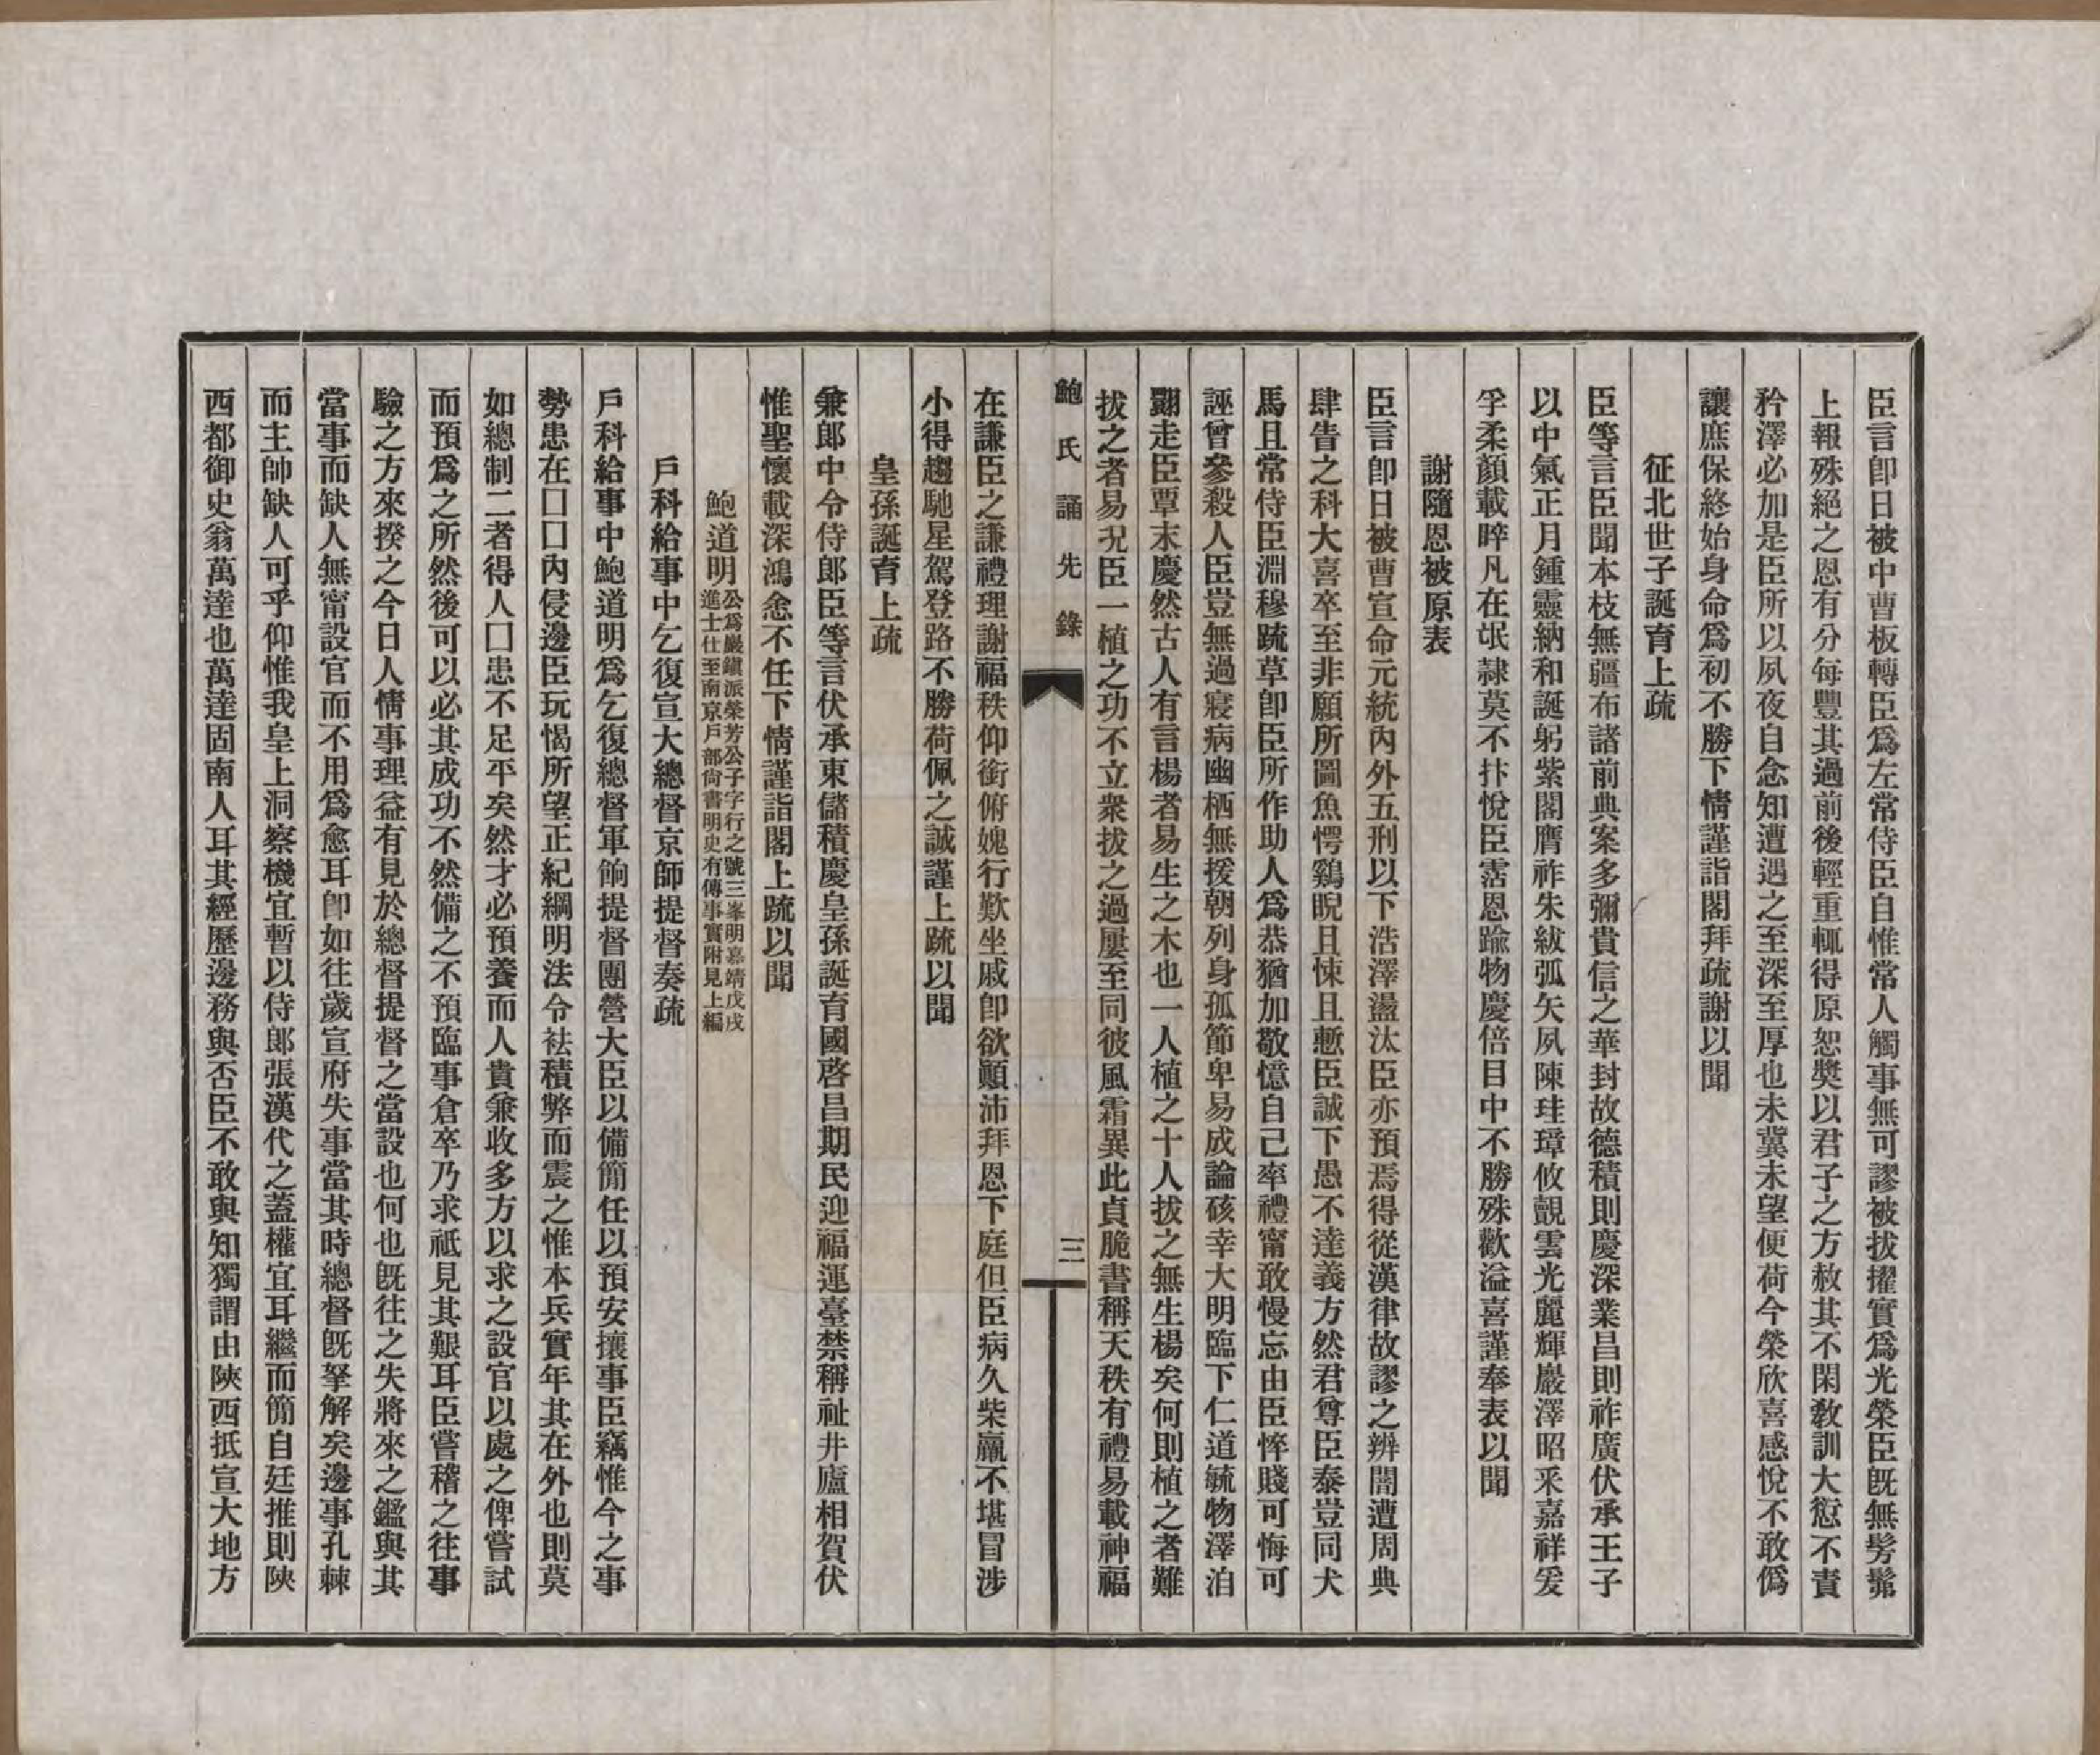 臣言卽日被中曹板轉臣爲左常侍臣自惟常人觸事無可謬被拔擢實爲光榮臣旣無髣髴
上報殊絕之恩有分每豐其過前後輕重輒得原恕獎以君子之方赦其不閑敎訓大愆不責
矜澤必加是臣所以夙夜自念知遭遇之至深至厚也未冀未望便荷今榮欣喜感悅不敢僞
讓庶保終始身命爲初不勝下情謹詣閣拜疏謝以聞
征北世子誕育上疏
臣等言臣聞本枝無疆布諸前典案多彌貴信之華封故德積則慶深業昌則祚廣伏承王子
以中氣正月鍾靈納和誕躬紫閣膺祚朱紱弧矢夙陳珪璋攸覿雲光麗輝巖澤昭釆嘉祥爰
孚柔顏載睟凡在氓隸莫不抃悅臣霑恩踰物慶倍目中不勝殊歡溢喜謹奉表以聞
謝隨恩被原表
臣言卽日被曹宣命元統內外五刑以下浩澤盪汰臣亦預焉得從漢律故謬之辨闇遭周典
肆眚之科大喜卒至非願所圖魚愕鷄睨且悚且慙臣誠下愚不達義方然君尊臣泰豈同犬
馬且常侍臣淵穆䟽草卽臣所作助人爲恭猶加敬憶自己率禮甯敢慢忘由臣悴賤可悔可
誣曾參殺人臣豈無過寢病幽栖無援朝列身孤節卑易成論硋幸大明臨下仁道毓物澤洎
翾走臣覃末慶然古人有言楊者易生之木也一人植之十人拔之無生楊矣何則植之者難
拔之者易況臣一植之功不立衆拔之過屢至同彼風霜異此貞脆書稱天秩有禮易載神福
鮑氏誦先錄
三
在謙臣之謙禮理謝福秩仰銜俯媿行歎坐戚卽欲顚沛拜恩下庭但臣病久柴羸不堪冒涉
小得趨馳星駕登路不勝荷佩之誠謹上䟽以聞
皇孫誕育上疏
兼郎中令侍郎臣等言伏承東儲積慶皇孫誕育國啓昌期民迎福運臺禁稱祉井廬相賀伏
惟聖懷載深鴻悆不任下情謹詣閣上䟽以聞
鮑道明公爲巖鎭派榮芳公子字行之號三峯明嘉靖戊戌
進士仕至南京戶部尙書明史有傳事實附見上編
戶科給事中乞復宣大總督京師提督奏疏
戶科給事中鮑道明爲乞復總督軍餉提督團營大臣以備簡任以預安攘事臣竊惟今之事
勢患在囗囗內侵邊臣玩愒所望正紀綱明法令袪積弊而震之惟本兵實年其在外也則莫
如總制二者得人囗患不足平矣然才必預養而人貴兼收多方以求之設官以處之俾嘗試
而預爲之所然後可以必其成功不然備之不預臨事倉卒乃求祗見其艱耳臣嘗稽之往事
驗之方來揆之今日人情事理益有見於總督提督之當設也何也旣往之失將來之鑑與其
當事而缺人無甯設官而不用爲愈耳卽如往歲宣府失事當其時總督旣拏解矣邊事孔棘
而主帥缺人可乎仰惟我皇上洞察機宜暫以侍郎張漢代之蓋權宜耳繼而簡自廷推則陝
西都御史翁萬達也萬達固南人耳其經歷邊務與否臣不敢與知獨謂由陝西抵宣大地方